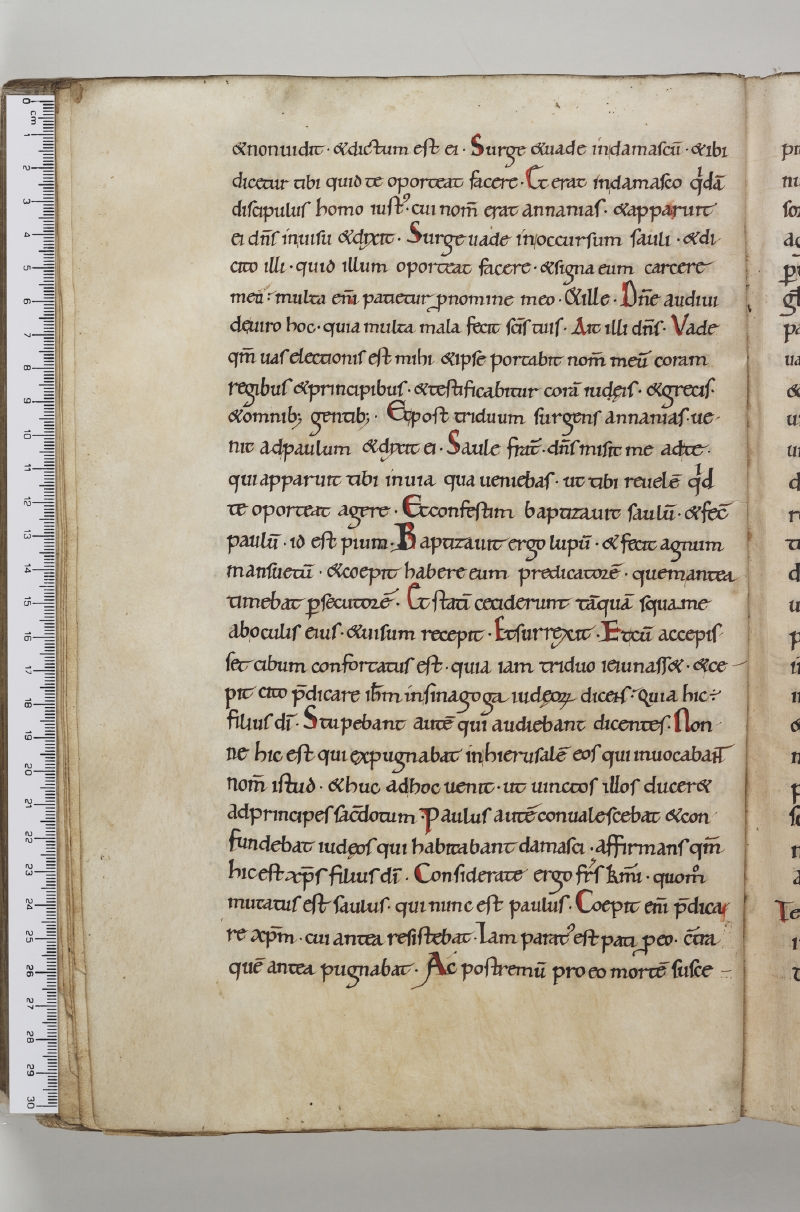 &nonuidit · &dictum est ei · Surge &uade indamascū · &ibi
dicetur tibi quid te oporteat facere · Et erat indamasco qdā
discipulus homo iustꝰ · cui nom̄ erat annanias · &apparuit
ei dn̄s inuisu &dixit · Surge uade inoccursum sauli · &di
cito illi · quid illum oporteat facere · &signa eum carcere
meū : multa eni̅ patietur ꝓnomine meo · &ille · Dn̄e audiui
deuiro hoc · quia multa mala fecit sc̄is tuis · Ait illi dn̄s · Vade
qm̄ uas electionis est mihi &ipse portabit nom̄ meū coram
regibus &principibus · &testificabitur corā iudęis · &grecis ·
&omnib; gentib; · Etpost triduum surgens annanias · ue
nit adpaulum &dixit ei · Saule frat̄ · dn̄s misit me adte ·
qui apparuit tibi inuia qua ueniebas · ut tibi reuelē qd
te oporteat agere · Etconfestim baptizauit saulū · &fec̄
paulū · id est pium · Baptizauit ergo lupū · &fecit agnum
mansuetū · &coepit habere eum predicatorē · quemantea
timebat ꝑsecutorē · Et statī ceciderunt tāquā squame
aboculis eius · &uisum recepit · Etsurrexit · Etcū accepis
set cibum confortatus est · quia iam triduo ieiunass& · &ce
pit cito p̄dicare ih̄m insinagoga iudęoꝝ dicens : Quia hic ÷
filius dī · Stupebant autē qui audiebant dicentes · Non
ne hic est qui expugnabat inhierusalē eos qui inuocabant
nom̄ istud · &huc adhoc uenit · ut uinctos illos ducer&
adprincipes sac̄dotum · Paulus autē conualescebat &con
fundebat iudęos qui habitabant damasci · affirmans qm̄
hic est xp̄s filius dī · Considerate ergo fr̄s km̄i · quom̊
mutatus est saulus · qui nunc est paulus · Coepit eni̅ p̄dica
re xp̄m · cui antea resistebat · Iam paratꝰ est pati ꝓeo · c̄tra
quē antea pugnabat · Ac postremū pro eo mortē susce